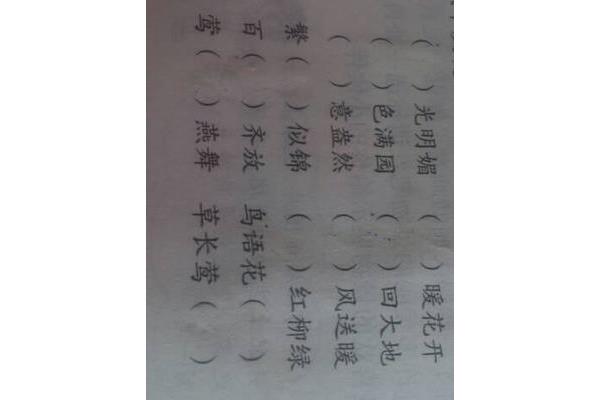 ( )光明媚 ( )暖花开
( )色满园 ( )回大地
( )意盎然 ( )风送暖
繁( )似锦 ( )红柳绿
百( )齐放 鸟语花( )
莺( )燕舞 草长莺( )